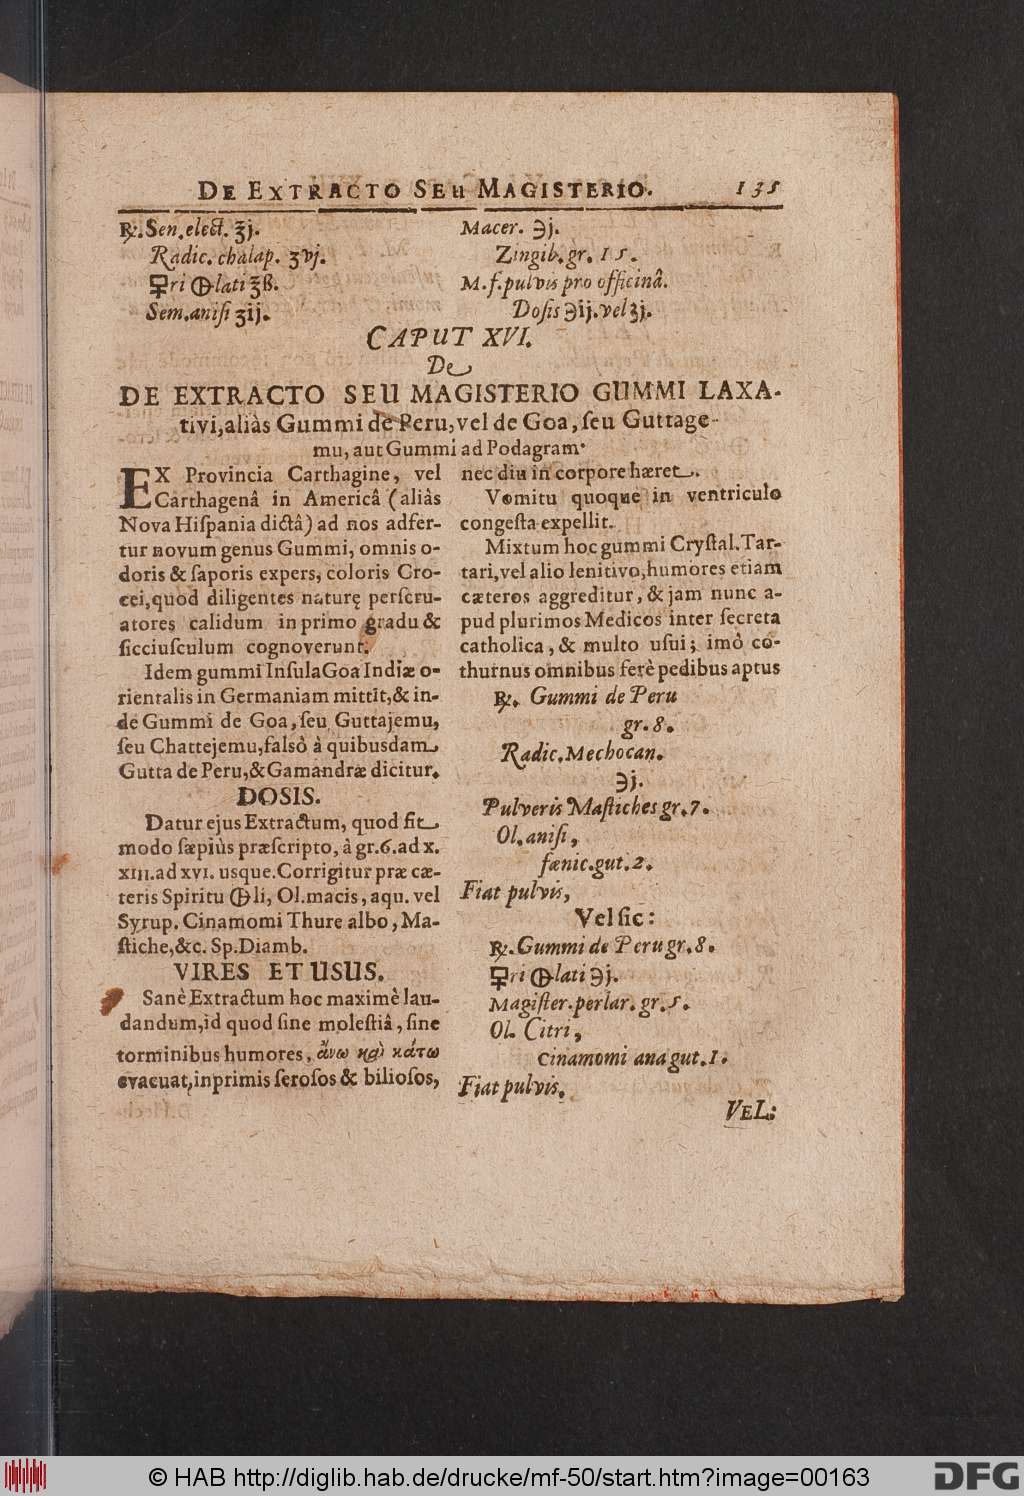 DE EXTRACTO SEU MAGISTERIO. 135
℞. Sen. elect. ʒj.
Radic. chalap. ʒvj.
🜿ri 🜕lati ʒß.
Sem. anisi ʒij.
Macer. ℈j.
Zingib. gr. 15.
M. f. pulvis pro officinâ.
Dosis ℈ij. vel ʒj.
CAPUT XVI.
De
DE EXTRACTO SEU MAGISTERIO GUMMI LAXA-
tivi, aliàs Gummi de Peru, vel de Goa, ſeu Guttage-
mu, aut Gummi ad Podagram.
EX Provincia Carthagine, vel
Carthagenâ in Americâ (aliàs
Nova Hiſpania dictâ) ad nos adfer-
tur novum genus Gummi, omnis o-
doris & ſaporis expers, coloris Cro-
cei, quod diligentes naturę perſcru-
atores calidum in primo gradu &
ſicciuſculum cognoverunt.
Idem gummi Inſula Goa Indiæ o-
rientalis in Germaniam mittit, & in-
de Gummi de Goa, ſeu Guttajemu,
ſeu Chattejemu, falsò à quibusdam
Gutta de Peru, & Gamandræ dicitur.
DOSIS.
Datur ejus Extractum, quod fit
modo ſæpiùs præſcripto, à gr. 6. ad x.
XIII. ad XVI. usque. Corrigitur præ cæ-
teris Spiritu 🜕li, Ol. macis, aqu. vel
Syrup. Cinamomi Thure albo, Ma-
ſtiche, &c. Sp. Diamb.
VIRES ET USUS.
Sanè Extractum hoc maximè lau-
dandum, id quod ſine moleſtiâ, ſine
torminibus humores, ἄνω καὶ κάτω
evacuat, inprimis ſeroſos & bilioſos,
nec diu in corpore hæret.
Vomitu quoque in ventriculo
congeſta expellit.
Mixtum hoc gummi Cryſtal. Tar-
tari, vel alio lenitivo, humores etiam
cæteros aggreditur, & jam nunc a-
pud plurimos Medicos inter ſecreta
catholica, & multo uſui; imò co-
thurnus omnibus ferè pedibus aptus
℞. Gummi de Peru
gr. 8.
Radic. Mechocan.
℈j.
Pulveris Maſtiches gr. 7.
Ol. aniſi,
fænic. gut. 2.
Fiat pulvis,
Vel ſic:
℞. Gummi de Peru gr. 8.
🜿ri 🜕lati ℈j.
Magiſter. perlar. gr. 5.
Ol. Citri,
Cinamomi ana gut. 1.
Fiat pulvis.
VEL:
© HAB http://diglib.hab.de/drucke/mf-50/start.htm?image=00163
DFG